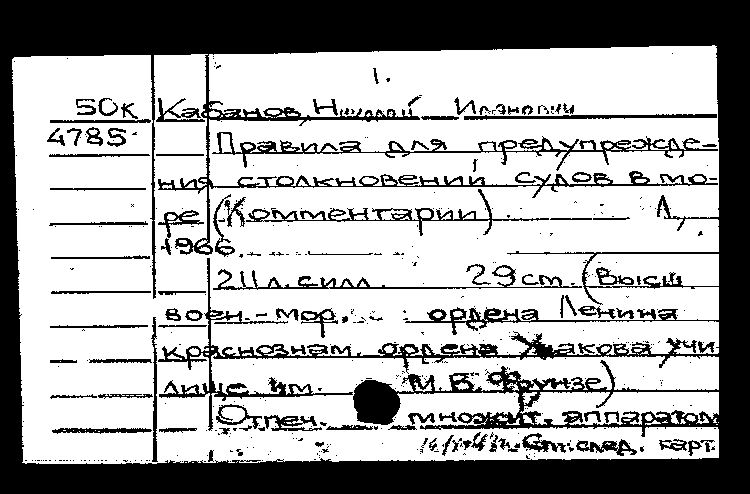 1.
50к Кабанов, Николай Иванович
4785 Правила для предупрежде-
ния столкновений судов в мо-
ре (Комментарии) Л.,
1966.
211 л. с илл. 29 см. (Высш.
воен.-мор. ордена Ленина
краснознам. ордена Ушакова учи-
лище им. М.В. Фрунзе)
Отпеч. множит. аппаратом
См. след. карт.